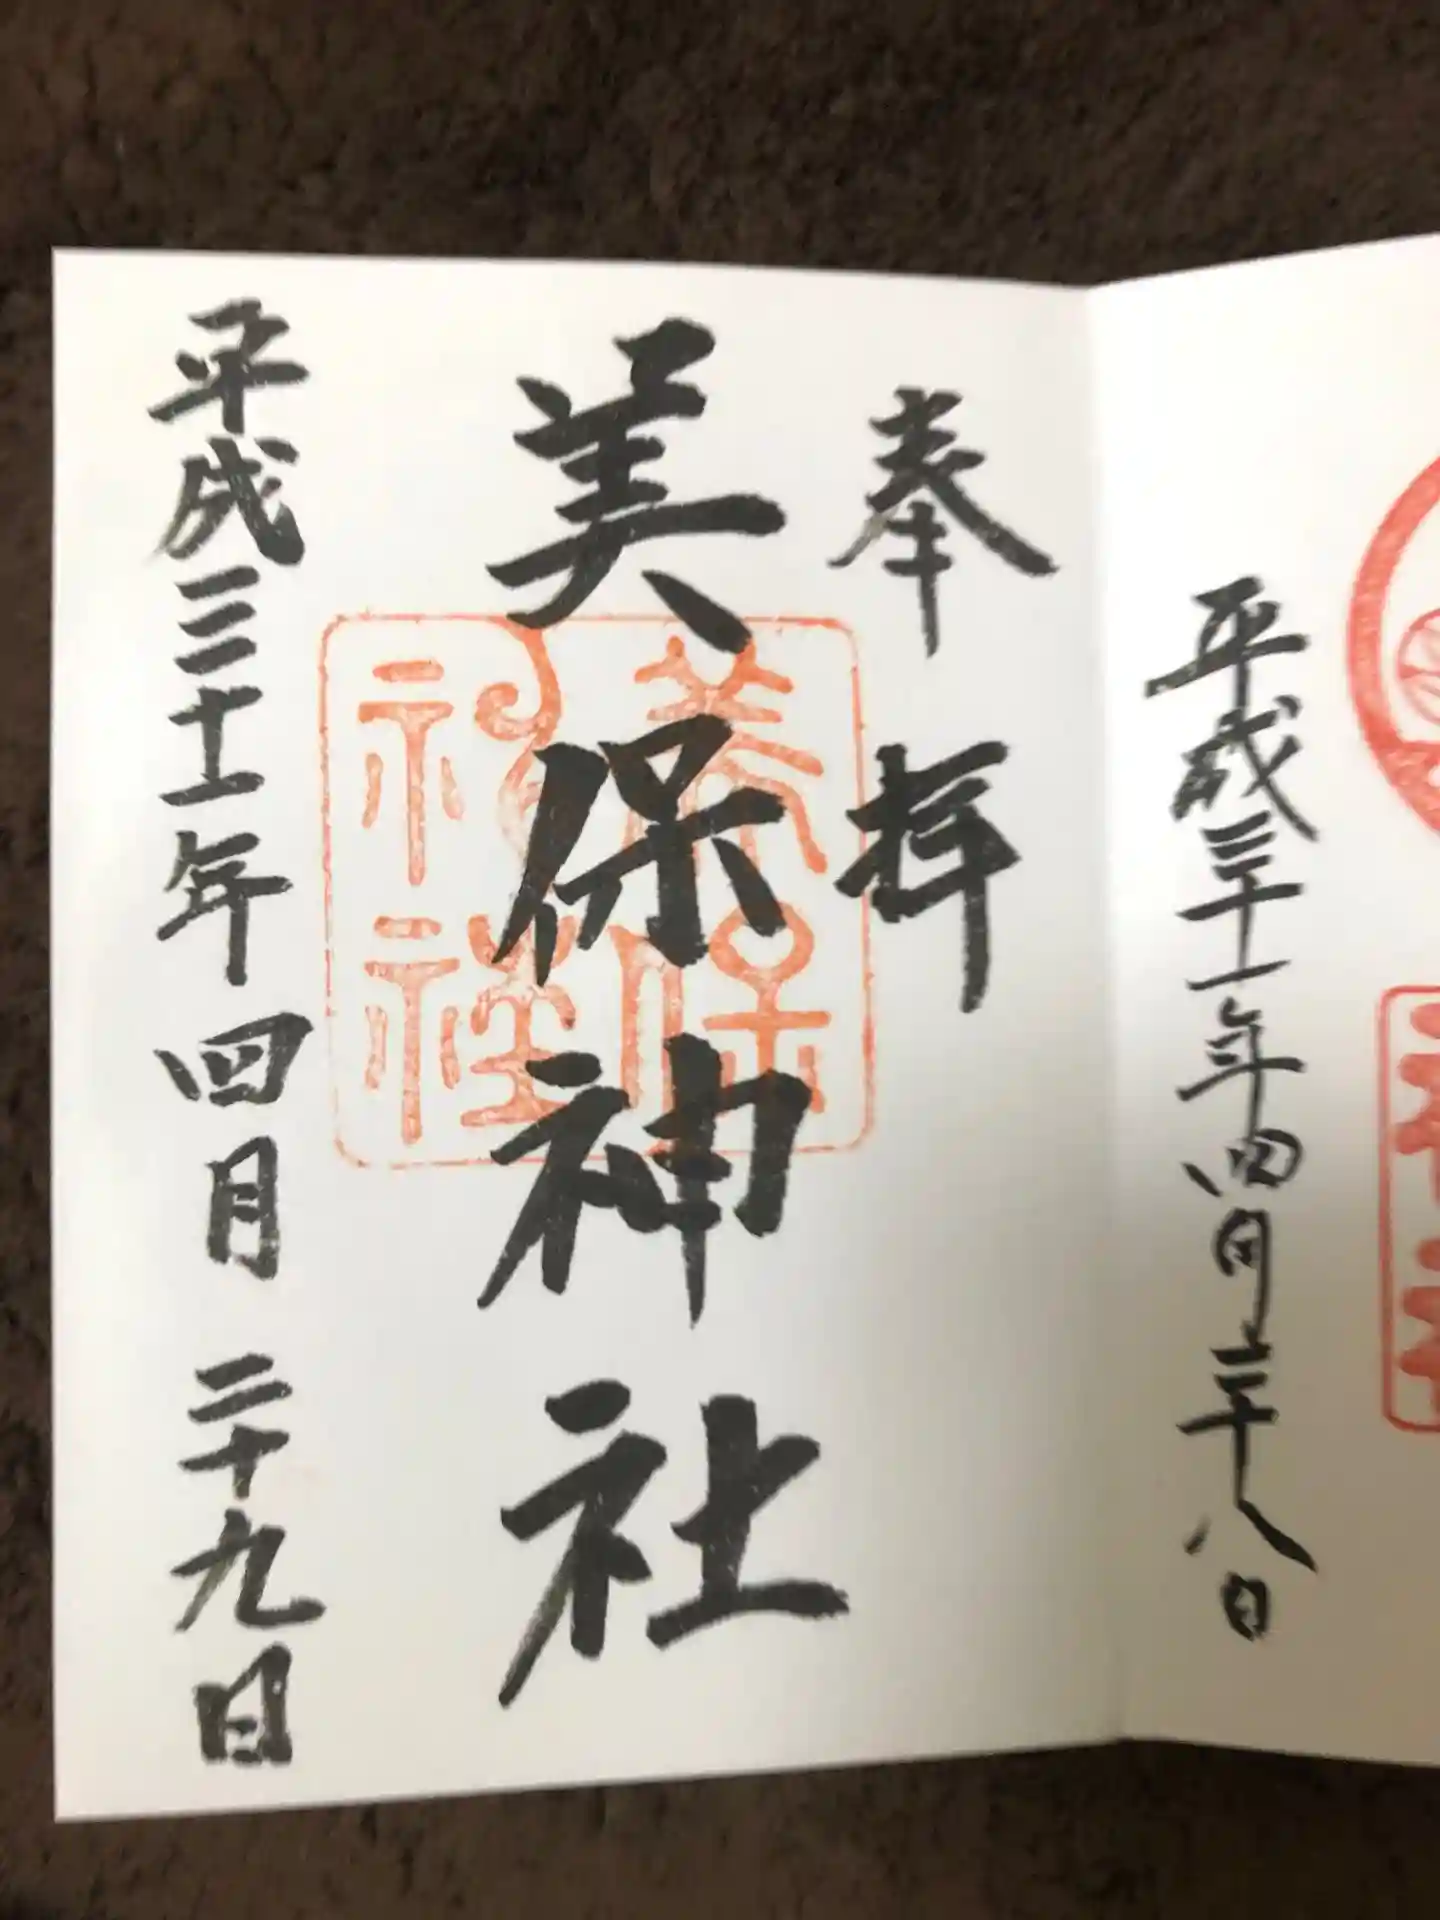 平成三十一年四月二十八日
奉拝
美保神社
平成三十一年四月二十九日